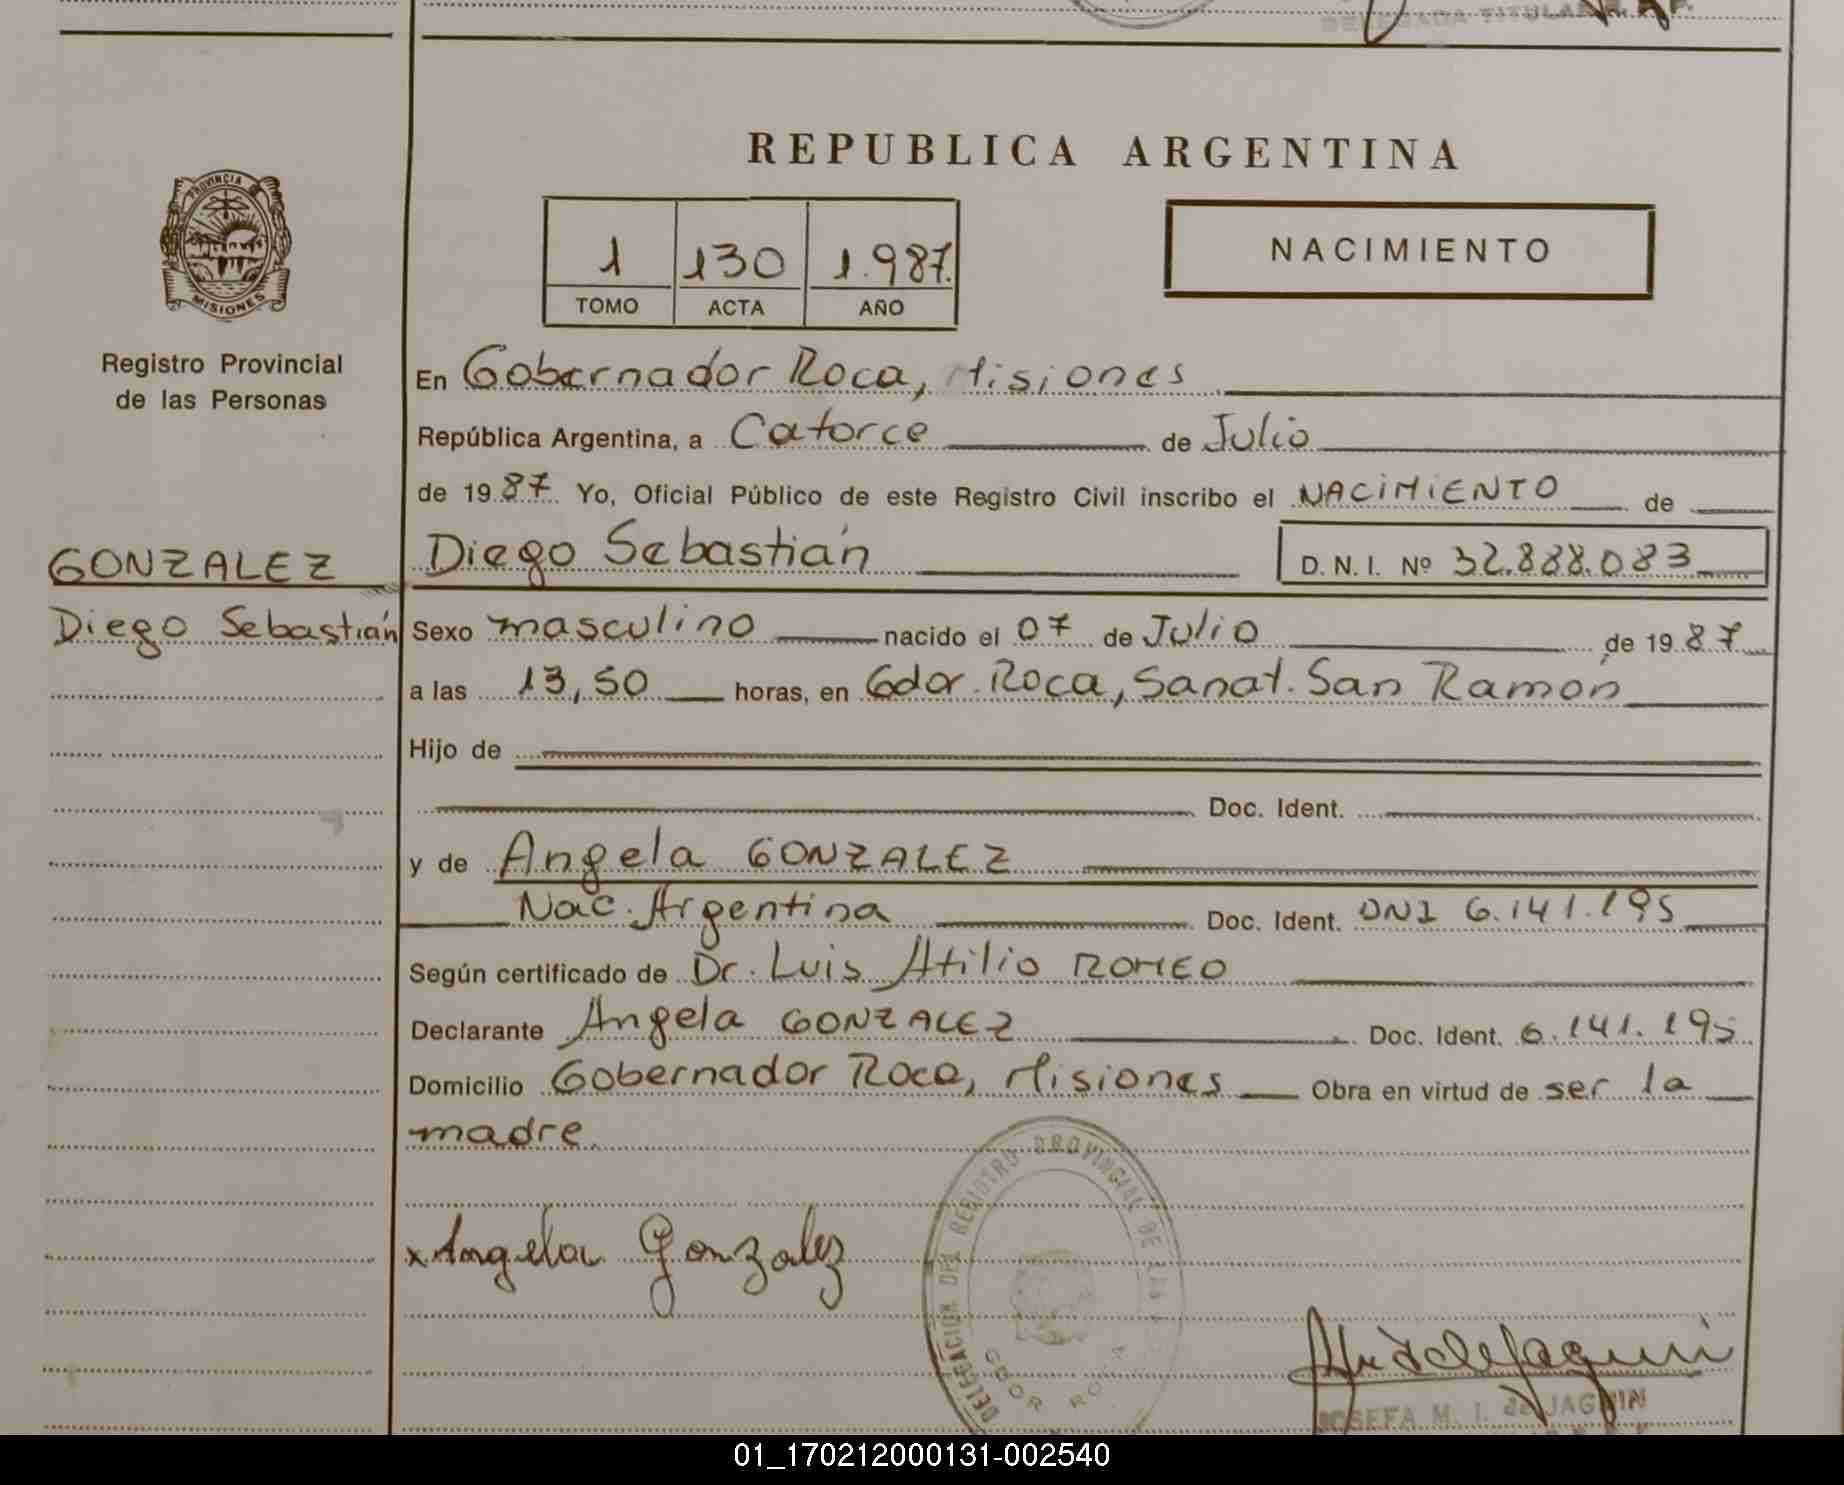 DELEGADA TITULAR R. P.
REPUBLICA ARGENTINA
PROVINCIA DE
MISIONES
1 130 1.987.
TOMO ACTA AÑO
NACIMIENTO
Registro Provincial
de las Personas
En Gobernador Roca, Misiones
República Argentina, a Catorce de Julio
de 1987 Yo, Oficial Público de este Registro Civil inscribo el NACIMIENTO de
GONZALEZ Diego Sebastián D. N. I. Nº 32.888.083
Diego Sebastián Sexo masculino nacido el 07 de Julio de 1987
a las 13,50 horas, en Gdor. Roca, Sanat. San Ramón
Hijo de
Doc. Ident.
y de Angela GONZALEZ
Nac. Argentina Doc. Ident. DNI 6.141.195
Según certificado de Dr. Luis Atilio ROMEO
Declarante Angela GONZALEZ Doc. Ident. 6.141.195
Domicilio Gobernador Roca, Misiones Obra en virtud de ser la
madre.
x Angela Gonzalez
DELEGACION DEL REGISTRO PROVINCIAL DE LAS
GDOR ROCA
JOSEFA M. I. de JAQUIN
01_170212000131-002540